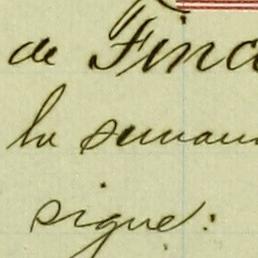 de Finc
la seman
sigue: